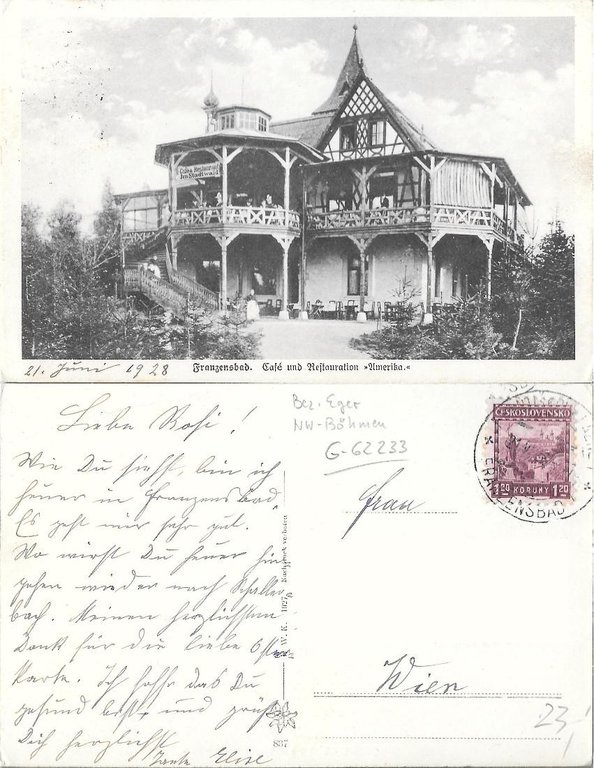 Café u. Restaurant
21. Juni 1928 Franzensbad. Café und Restauration »Amerika.«
Liebe Rosi!
Bez. Eger
NW-Böhmen
G-62233
ČESKOSLOVENSKO
1.20 KORUNY 1.20
FRANZENSBAD
Wie Du siehst, bin ich
heuer in Franzensbad.
Es geht mir sehr gut.
Wo wirst Du heuer hin
gehen wieder nach Schaller
bach. Meinen herzlichsten
Dank für die liebe Oster
karte. Ich hoffe das Du
gesund bist und grüße
Dich herzlichst
Tante Elise
W. K. 1927
Nachdruck verboten
837
Frau
Wien
23,-